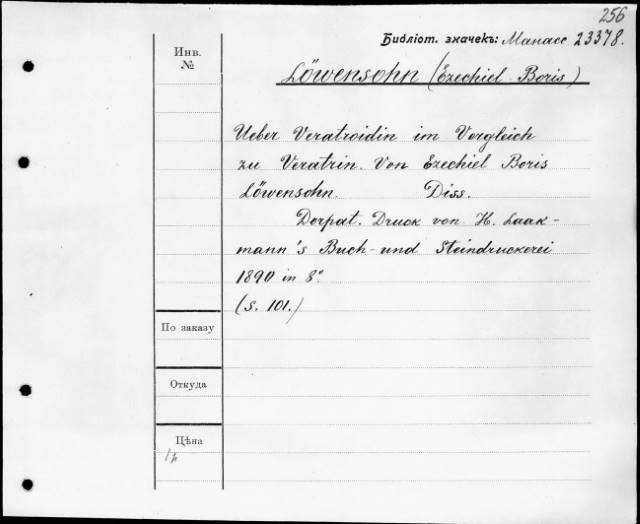 256
Библіот. значекъ: Манасс. 23378.
Инв.
№
Löwensohn (Ezechiel Boris)
Ueber Veratroidin im Vergleich
zu Veratrin. Von Ezechiel Boris
Löwensohn. Diss.
Dorpat. Druck von H. Laak-
mann's Buch- und Steindruckerei
1890 in 8°
(S. 101.)
По заказу
Откуда
Цѣна
1р